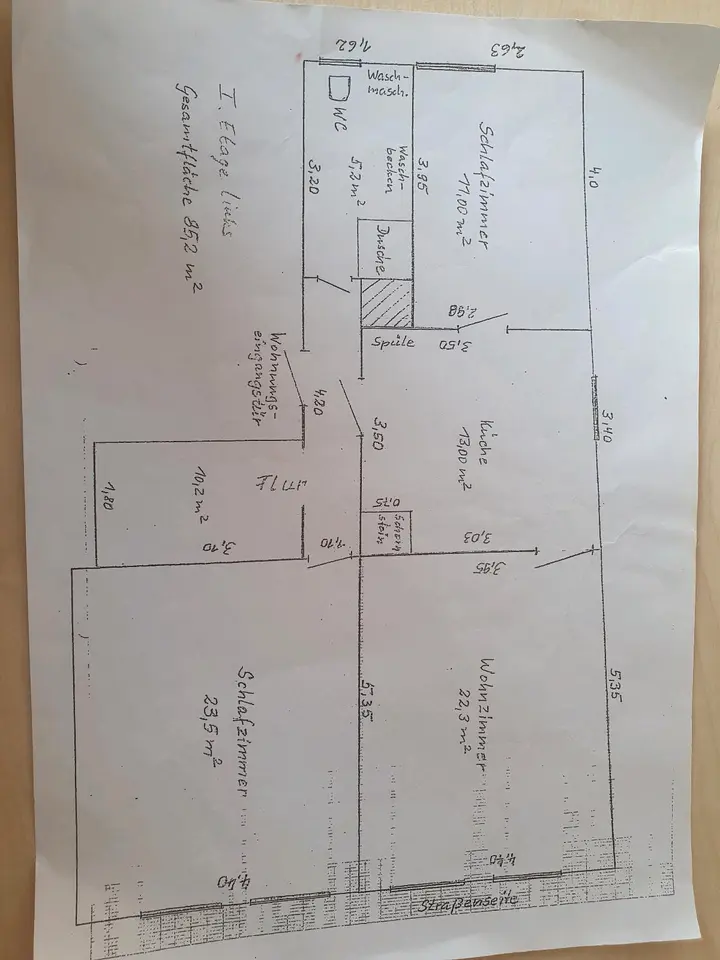 I. Etage links
Gesamtfläche 85,2 m²
1,62
2,63
Wasch-
masch.
WC
5,2 m²
Wasch-
becken
3,20
3,95
Dusche
Schlafzimmer
11,00 m²
4,0
2,98
3,50
Spüle
Wohnungs-
eingangstür
4,80
3,50
Küche
13,00 m²
3,40
0,75
Schorn
stein
3,03
3,95
Flur
10,2 m²
1,80
3,10
1,10
Schlafzimmer
23,5 m²
5,35
Wohnzimmer
22,3 m²
5,35
4,40
4,40
Straßenseite